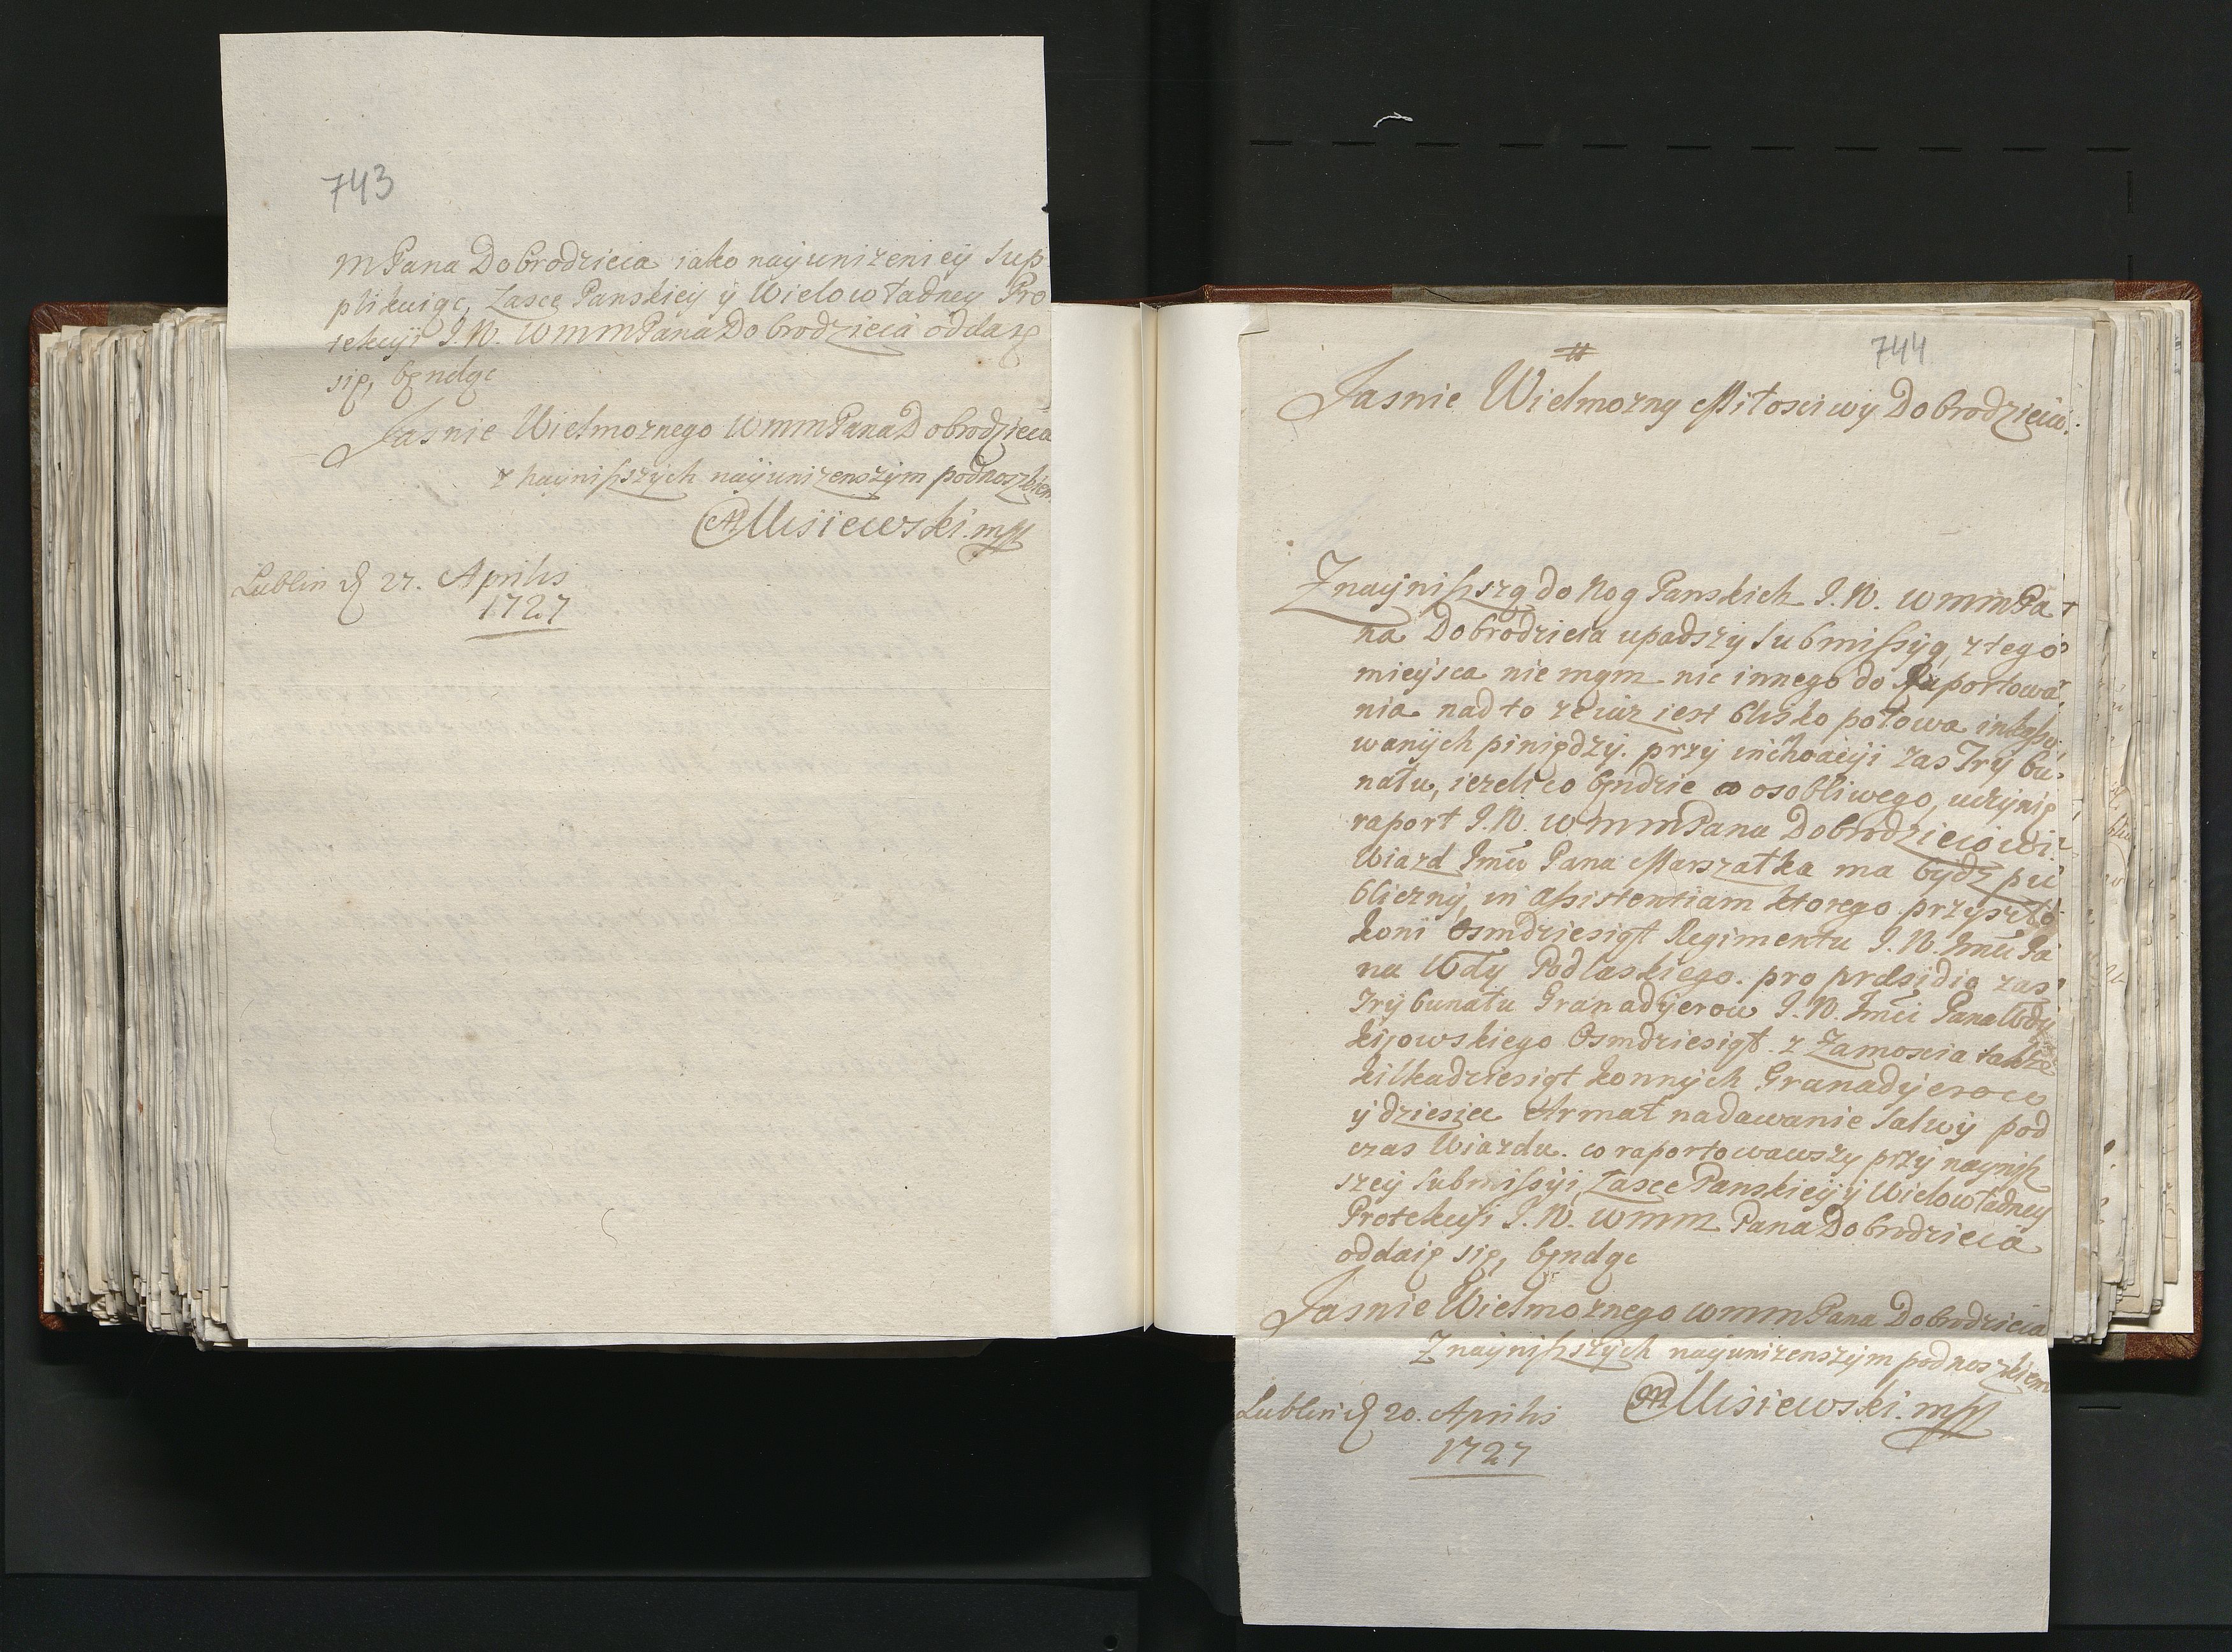 743
mPana Dobrodzieia iako nayuniżeniey sup
plikuiąc, Łasce Panskiey y Wielowładney Pro
tekcyi J.W. WmmPana Dobrodzieia oddaię
się, będąc
Jasnie Wielmoznego WmmPana Dobrodzieia
z nayniższych nayunizenszym podnoszkiem
Misiewski. mpp
Lublin d 27. Aprilis
1727
744
#
Jasnie Wielmozny Miłosciwy Dobrodzieiu.
Znayniższą do Nog Panskich J.W. WmmPa
na Dobrodzieia upadszy submissyą, z tego
mieysca nie mąm nic innego do Raportowa
nia nad to ze iuz iest blisko połowa
wanych piniędzy. przy inchoacyi zas Trybu
nału, iezeli co będzie osobliwego, uczynię
raport J.W. WmmPanu Dobrodzieiowi.
Wiazd Jmci Pana Marszałka ma bydz pu
bliczny, in assistentiam ktorego przyszło
koni Osmdziesiąt Regimentu J.W. Jmci Pa
na Wdy Podlaskiego. pro præsidio zas
Trybunału Granadyerow J.W. Jmci Pana Wdy
kijowskiego Osmdziesiąt. z Zamoscia także
kilkadziesiąt konnych Granadyerow
y dziesięc Armat nadawanie salwy pod
czas Wiazdu. co raportowawszy przy nayniż
szey submissyi, Łasce Panskiey y Wielowładney
Protekcyi J.W. Wmm Pana Dobrodzieia
oddaię się, będąc
Jasnie Wielmoznego WmmPana Dobrodzieia
Z nayniższych nayunizenszym podnoszkiem
Lublin d 20. Aprilis Misiewski. mpp
1727